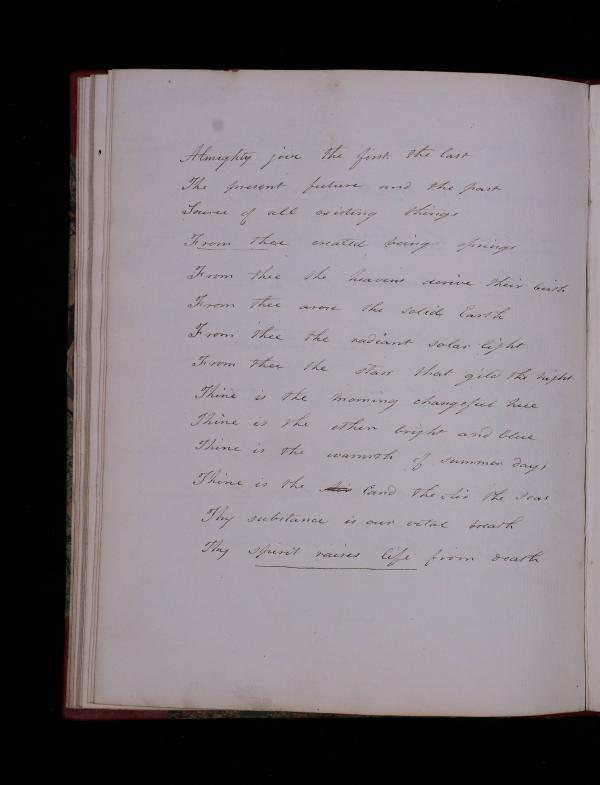 Almighty jove the first the last
The present future and the past
Source of all existing things
From thee created being springs
From thee the heavens derive their birth
From thee arose the solid Earth
From thee the radiant solar light
From thee the stars that gild the night
Thine is the morning changeful hue
Thine is the ether bright and blue
Thine is the warmth of summer days
Thine is the Land the Air the seas
Thy substance is our vital breath
Thy spirit raises life from death